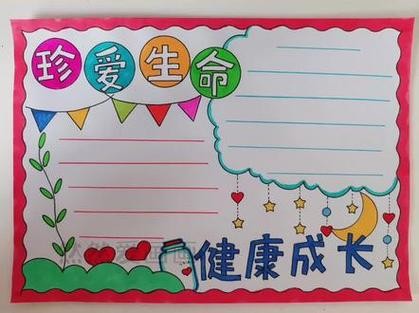 珍爱生命
健康成长